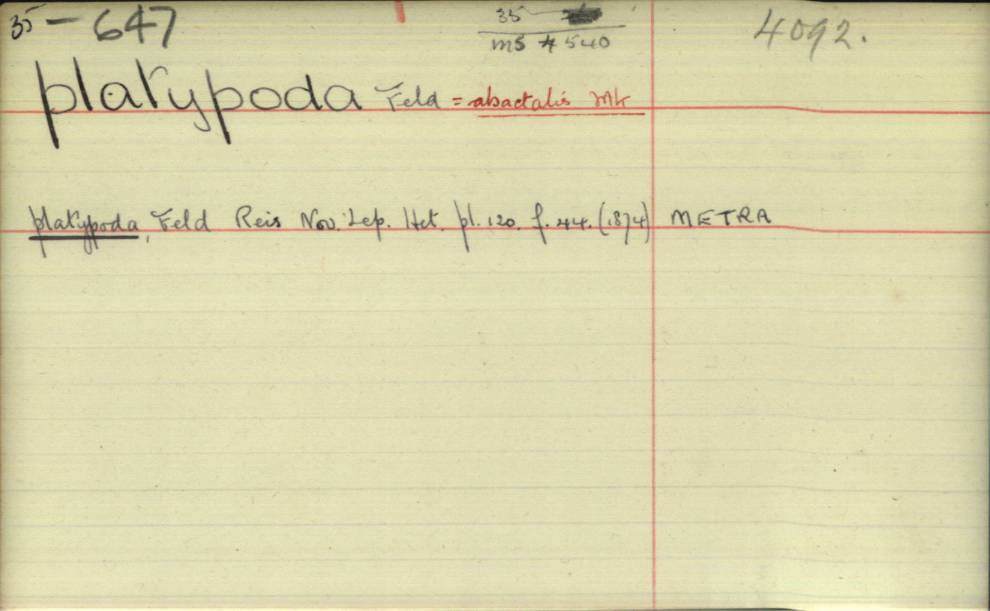 35-647
35
MS # 540
4092.
platypoda Feld = abactalis Wlk
platypoda, Feld Reis Nov. Lep. Het. pl. 120. f. 44. (1874) METRA